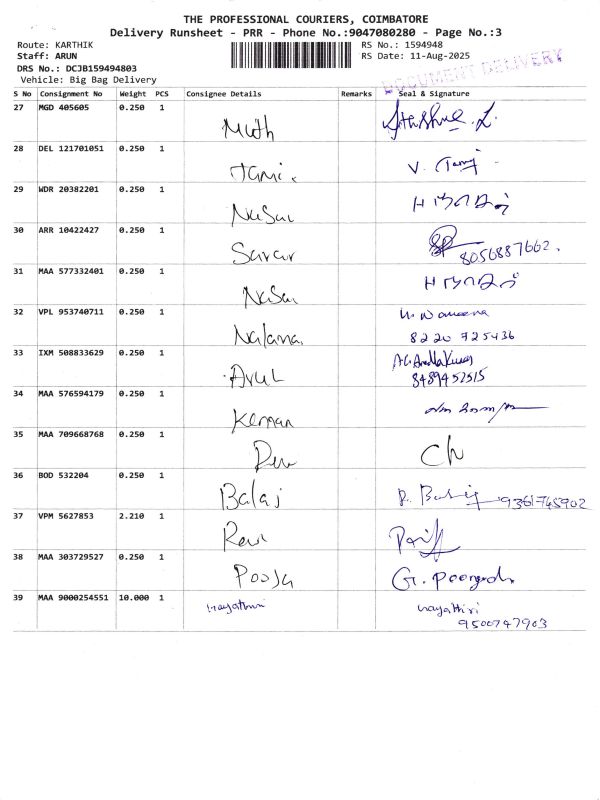 THE PROFESSIONAL COURIERS, COIMBATORE
Delivery Runsheet - PRR - Phone No.:9047080280 - Page No.:3
Route: KARTHIK RS No.: 1594948
Staff: ARUN RS Date: 11-Aug-2025
DRS No.: DCJB159494803
DOCUMENT DELIVERY
Vehicle: Big Bag Delivery
S No Consignment No Weight PCS Consignee Details Remarks Seal & Signature
27 MGD 405605 0.250 1 Muth
28 DEL 121701051 0.250 1 Tami. V.
29 WDR 20382201 0.250 1 Nasar
30 ARR 10422427 0.250 1 Sarar 8056887662.
31 MAA 577332401 0.250 1 Nasar
32 VPL 953740711 0.250 1
8220 725436
33 IXM 508833629 0.250 1 Arul
8489452515
34 MAA 576594179 0.250 1
35 MAA 709668768 0.250 1 Ch
36 BOD 532204 0.250 1 Balaj 9361745902
37 VPM 5627853 2.210 1 Ravi
38 MAA 303729527 0.250 1 Pooja G.
39 MAA 9000254551 10.000 1 Gayathiri Gayathiri
9500747903